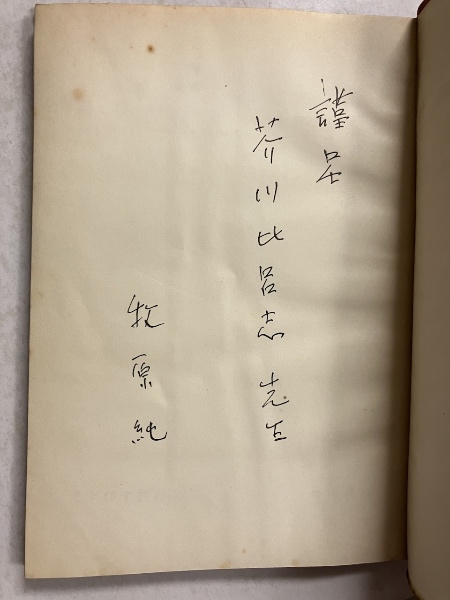 謹呈
芥川比呂志先生
牧原純